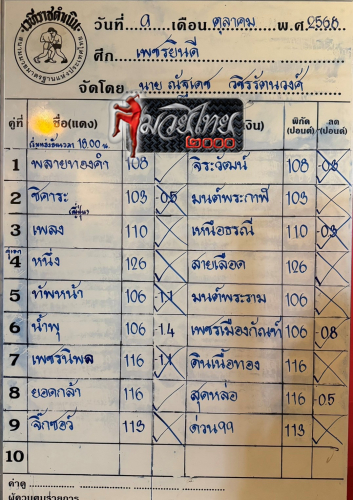 เวทีราชดำเนิน
วันที่ ๑ เดือน ตุลาคม พ.ศ. 2568
ศึก เพชรยินดี
จัดโดย นาย ณัฐเดช วชิรรัตนวงศ์
มวยไทย
๒๐๐๐
คู่ที่ ชื่อ(แดง) งิน) พิกัด (ปอนด์) ลด (ปอนด์)
เริ่มชกเวลา 18.00 น.
1 พลายทองคำ 108 จิระวัฒน์ 108 -0.3
2 ชิคาระ 103 -0.5 มนต์พระกาฬ 103
(ญี่ปุ่น)
3 เพลง 110 เหนือธรณี 110 -0.3
คู่เอก
4 หนึ่ง 126 สายเลือด 126
5 ทัพหน้า 106 -1.1 มนต์พระราม 106
6 น้ำพุ 106 -1.4 เพชรเมืองกัณฑ์ 106 -0.8
7 เพชรนิพล 116 -1.1 ดินเนื้อทอง 116
8 ยอดกล้า 116 สุดหล่อ 116 -0.5
9 จิ๊กซอว์ 113 ด่วน99 113
10
ค่าดู
ผู้ควบคุมรายการ